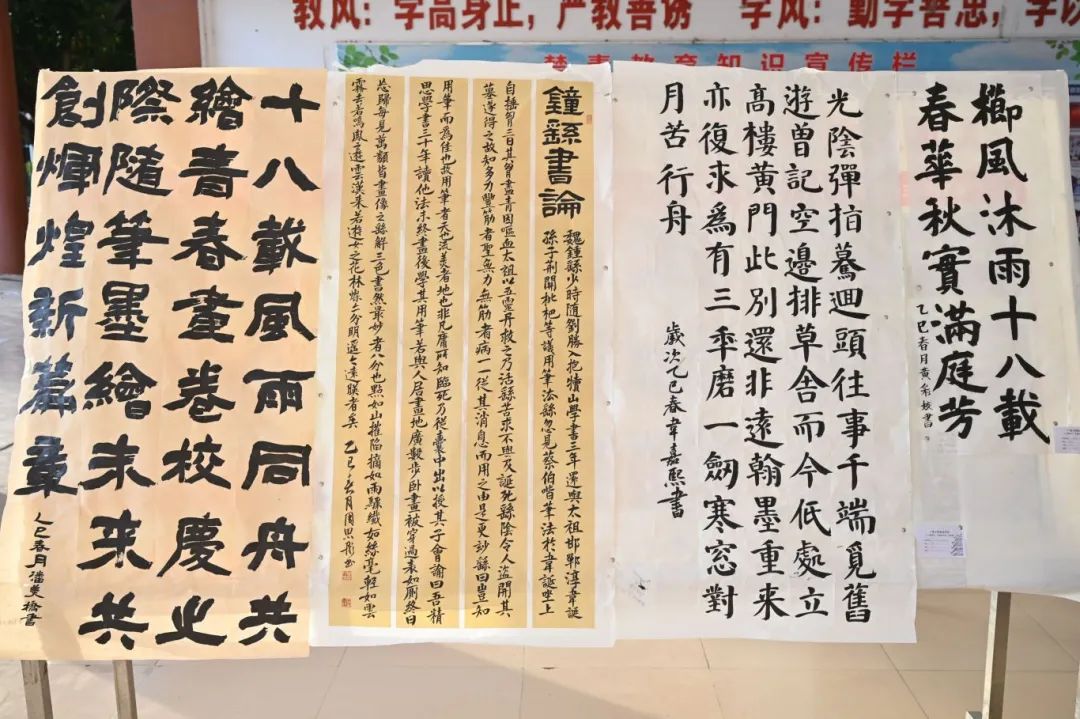 教风：学高身正，严教善诱 学风：勤学善思，学以
禁毒教育知识宣传栏
櫛風沐雨十八載
春華秋實滿庭芳
乙巳春月黄書
光陰彈指驀迴頭往事千端覓舊
遊曾記空邊排草舍而今低處立
高樓黄門此别還非遠翰墨重来
亦復求為有三年磨一劒寒窓對
月苦行舟
歲次乙巳春韋嘉熙書
鍾繇書論
魏鍾繇少時随劉勝入抱犢山學書三年還與太祖邯鄲淳韋誕
孫子荆開枇杷等議用筆法繇忽見蔡伯喈筆法於韋誕坐上
自搥胷三日其胷盡青因嘔血太祖以五靈丹救之乃活繇苦求不與及誕死繇陰令人盗開其
墓遂得之故知多力豐筋者聖無力無筋者病一一從其消息而用之由是更妙繇曰豈知
用筆而為佳也故用筆者天也流美者地也非凡庸所知臨死乃從囊中出以授其子會諭曰吾精
思學書三十年讀他法未終盡後學其用筆若與人居畫地廣數步卧畫被穿過表如厠終日
忘歸每見萬類皆畫像之繇解三色書然最妙者八分也點如山摧陷摘如雨驟纖如絲毫輕如雲
霧去若鳴鳳之遊雲漢来若遊女之花林燦燦分明遥遥遠映者矣 乙巳春月周思彤書
十八載風雨同舟共
繪青春畫卷校慶之
際隨筆墨繪未来共
創煇煌新篇章
乙巳春月潘美橋書